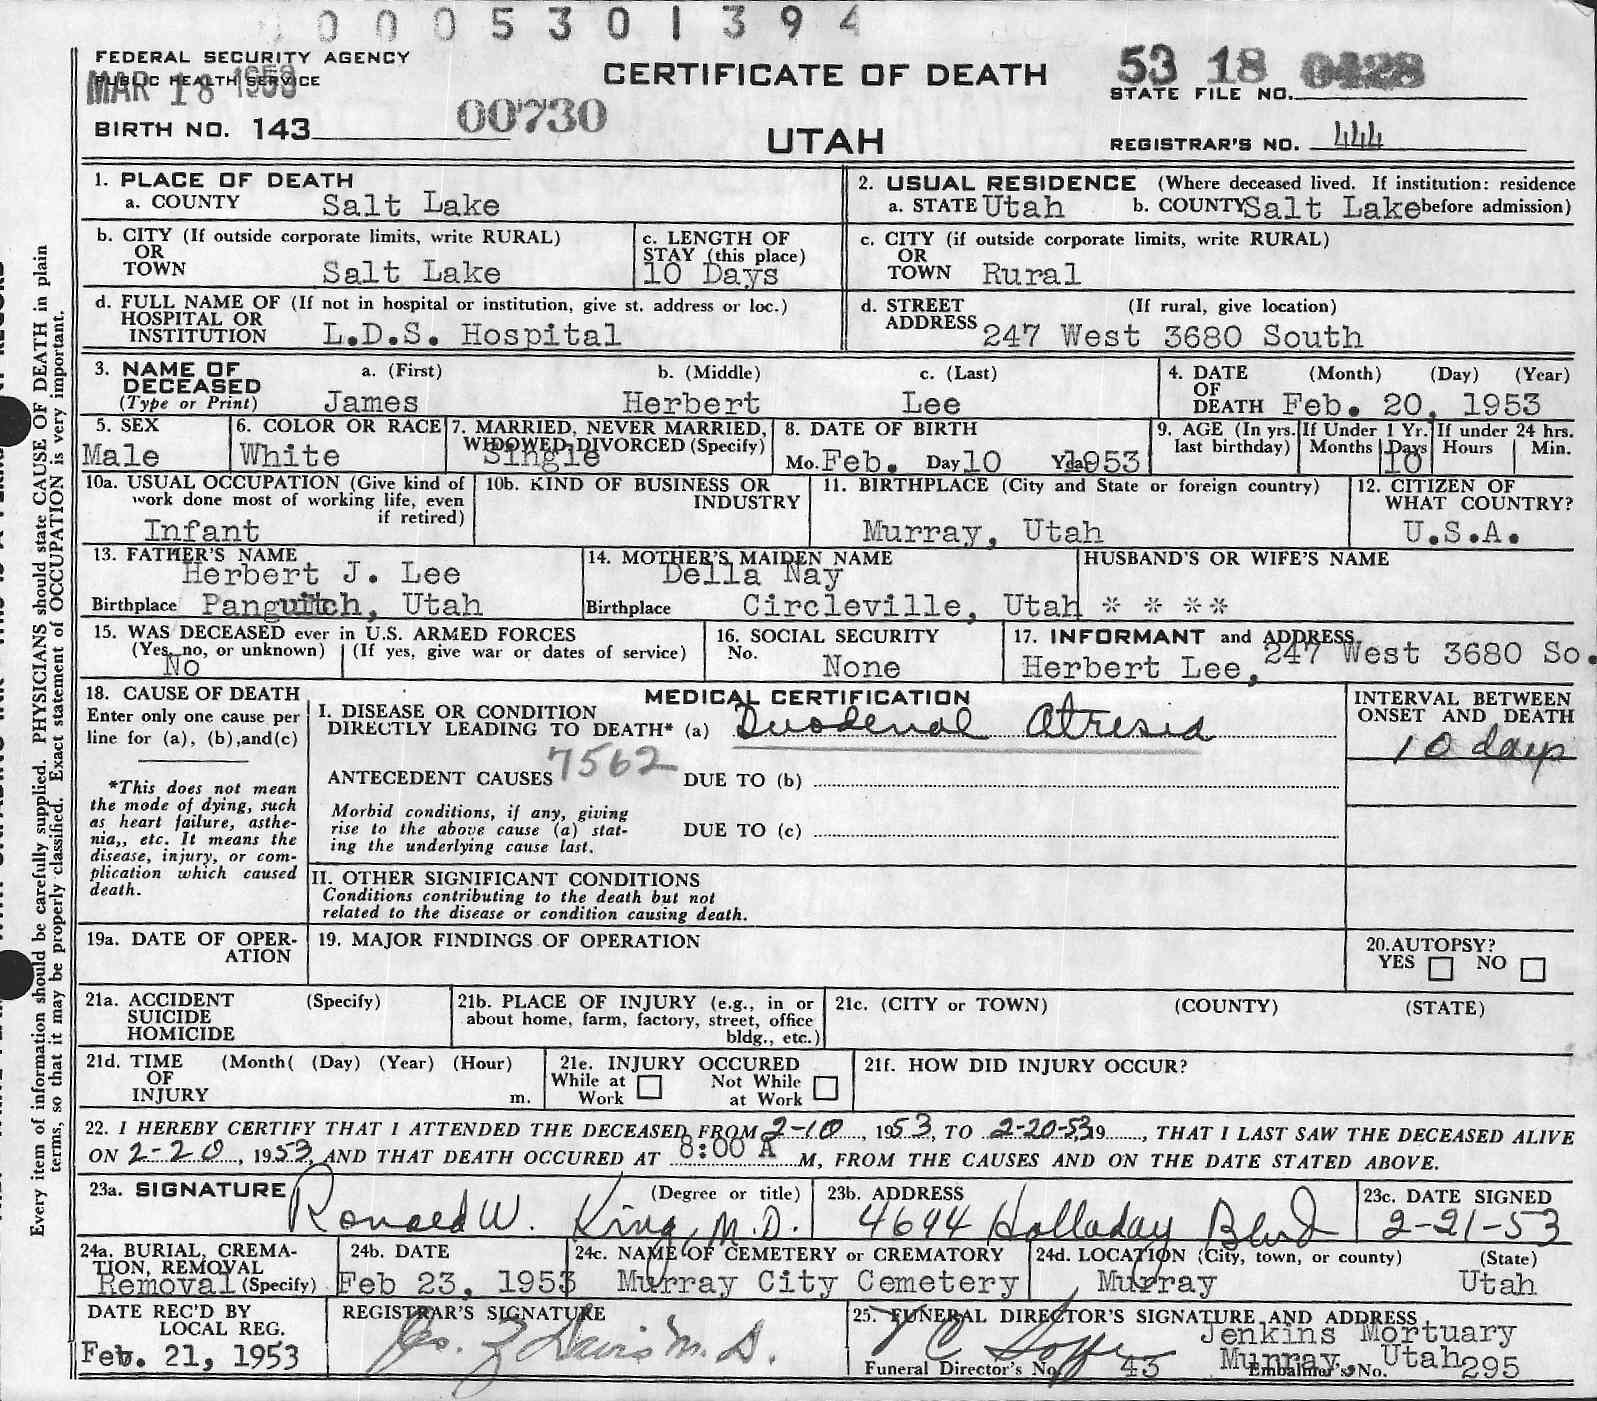 0005301394
FEDERAL SECURITY AGENCY
PUBLIC HEALTH SERVICE
MAR 18 1953
CERTIFICATE OF DEATH
53 18 0428
STATE FILE NO.
BIRTH NO. 143
00730
UTAH
REGISTRAR'S NO. 444
1. PLACE OF DEATH
a. COUNTY Salt Lake
2. USUAL RESIDENCE (Where deceased lived. If institution: residence
a. STATE Utah b. COUNTY Salt Lake before admission)
b. CITY (If outside corporate limits, write RURAL)
OR
TOWN Salt Lake
c. LENGTH OF
STAY (this place)
10 Days
c. CITY (if outside corporate limits, write RURAL)
OR
TOWN Rural
d. FULL NAME OF (If not in hospital or institution, give st. address or loc.)
HOSPITAL OR
INSTITUTION L.D.S. Hospital
d. STREET (If rural, give location)
ADDRESS 247 West 3680 South
3. NAME OF a. (First) b. (Middle) c. (Last)
DECEASED
(Type or Print) James Herbert Lee
4. DATE (Month) (Day) (Year)
OF
DEATH Feb. 20, 1953
5. SEX
Male
6. COLOR OR RACE
White
7. MARRIED, NEVER MARRIED,
WIDOWED, DIVORCED (Specify)
Single
8. DATE OF BIRTH
Mo. Feb. Day 10 Year 1953
9. AGE (In yrs. last birthday)
If Under 1 Yr.
Months Days
10
If under 24 hrs.
Hours Min.
10a. USUAL OCCUPATION (Give kind of
work done most of working life, even
if retired)
Infant
10b. KIND OF BUSINESS OR
INDUSTRY
11. BIRTHPLACE (City and State or foreign country)
Murray, Utah
12. CITIZEN OF
WHAT COUNTRY?
U.S.A.
13. FATHER'S NAME
Herbert J. Lee
Birthplace Panguitch, Utah
14. MOTHER'S MAIDEN NAME
Della Nay
Birthplace Circleville, Utah
HUSBAND'S OR WIFE'S NAME
* * * *
15. WAS DECEASED ever in U.S. ARMED FORCES
(Yes, no, or unknown) (If yes, give war or dates of service)
No
16. SOCIAL SECURITY
No.
None
17. INFORMANT and ADDRESS
Herbert Lee, 247 West 3680 So.
18. CAUSE OF DEATH
Enter only one cause per
line for (a), (b),and(c)
*This does not mean
the mode of dying, such
as heart failure, asthe-
nia,, etc. It means the
disease, injury, or com-
plication which caused
death.
MEDICAL CERTIFICATION
I. DISEASE OR CONDITION
DIRECTLY LEADING TO DEATH* (a) Duodenal Atresia
7562
ANTECEDENT CAUSES DUE TO (b)
Morbid conditions, if any, giving
rise to the above cause (a) stat-
ing the underlying cause last.
DUE TO (c)
II. OTHER SIGNIFICANT CONDITIONS
Conditions contributing to the death but not
related to the disease or condition causing death.
INTERVAL BETWEEN
ONSET AND DEATH
10 days
19a. DATE OF OPER-
ATION
19. MAJOR FINDINGS OF OPERATION
20.AUTOPSY?
YES NO
21a. ACCIDENT (Specify)
SUICIDE
HOMICIDE
21b. PLACE OF INJURY (e.g., in or
about home, farm, factory, street, office
bldg., etc.)
21c. (CITY or TOWN) (COUNTY) (STATE)
21d. TIME (Month( (Day) (Year) (Hour)
OF
INJURY m.
21e. INJURY OCCURED
While at Work Not While at Work
21f. HOW DID INJURY OCCUR?
22. I HEREBY CERTIFY THAT I ATTENDED THE DECEASED FROM 2-10, 1953, TO 2-20-53, 19....., THAT I LAST SAW THE DECEASED ALIVE
ON 2-20, 1953, AND THAT DEATH OCCURED AT 8:00 A M, FROM THE CAUSES AND ON THE DATE STATED ABOVE.
23a. SIGNATURE (Degree or title)
Ronald W. King, M.D.
23b. ADDRESS
4694 Holladay Blvd
23c. DATE SIGNED
2-21-53
24a. BURIAL, CREMA-
TION, REMOVAL
Removal (Specify)
24b. DATE
Feb 23, 1953
24c. NAME OF CEMETERY or CREMATORY
Murray City Cemetery
24d. LOCATION (City, town, or county) (State)
Murray Utah
DATE REC'D BY
LOCAL REG.
Feb. 21, 1953
REGISTRAR'S SIGNATURE
Davis M.D.
25. FUNERAL DIRECTOR'S SIGNATURE AND ADDRESS
Jenkins Mortuary
Murray, Utah
Funeral Director's No. 43 Embalmer's No. 295
Every item of information should be carefully supplied. PHYSICIANS should state CAUSE OF DEATH in plain
terms, so that it may be properly classified. Exact statement of OCCUPATION is very important.